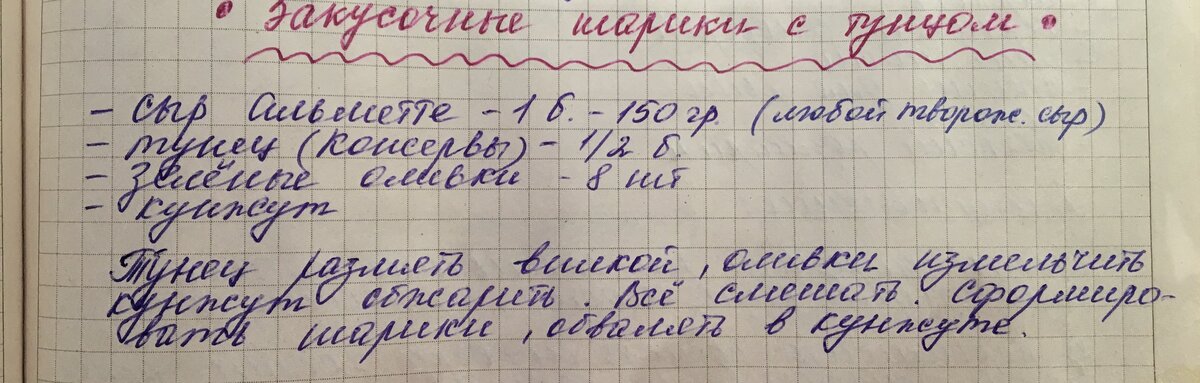 • Закусочные шарики с тунцом •
- сыр Альметте - 1 б. - 150 гр. (любой творож. сыр)
- тунец (консервы) - 1/2 б.
- зелёные оливки - 8 шт
- кунжут
Тунец размять вилкой, оливки измельчить
кунжут обжарить. Всё смешать. Сформиро-
вать шарики, обвалять в кунжуте.